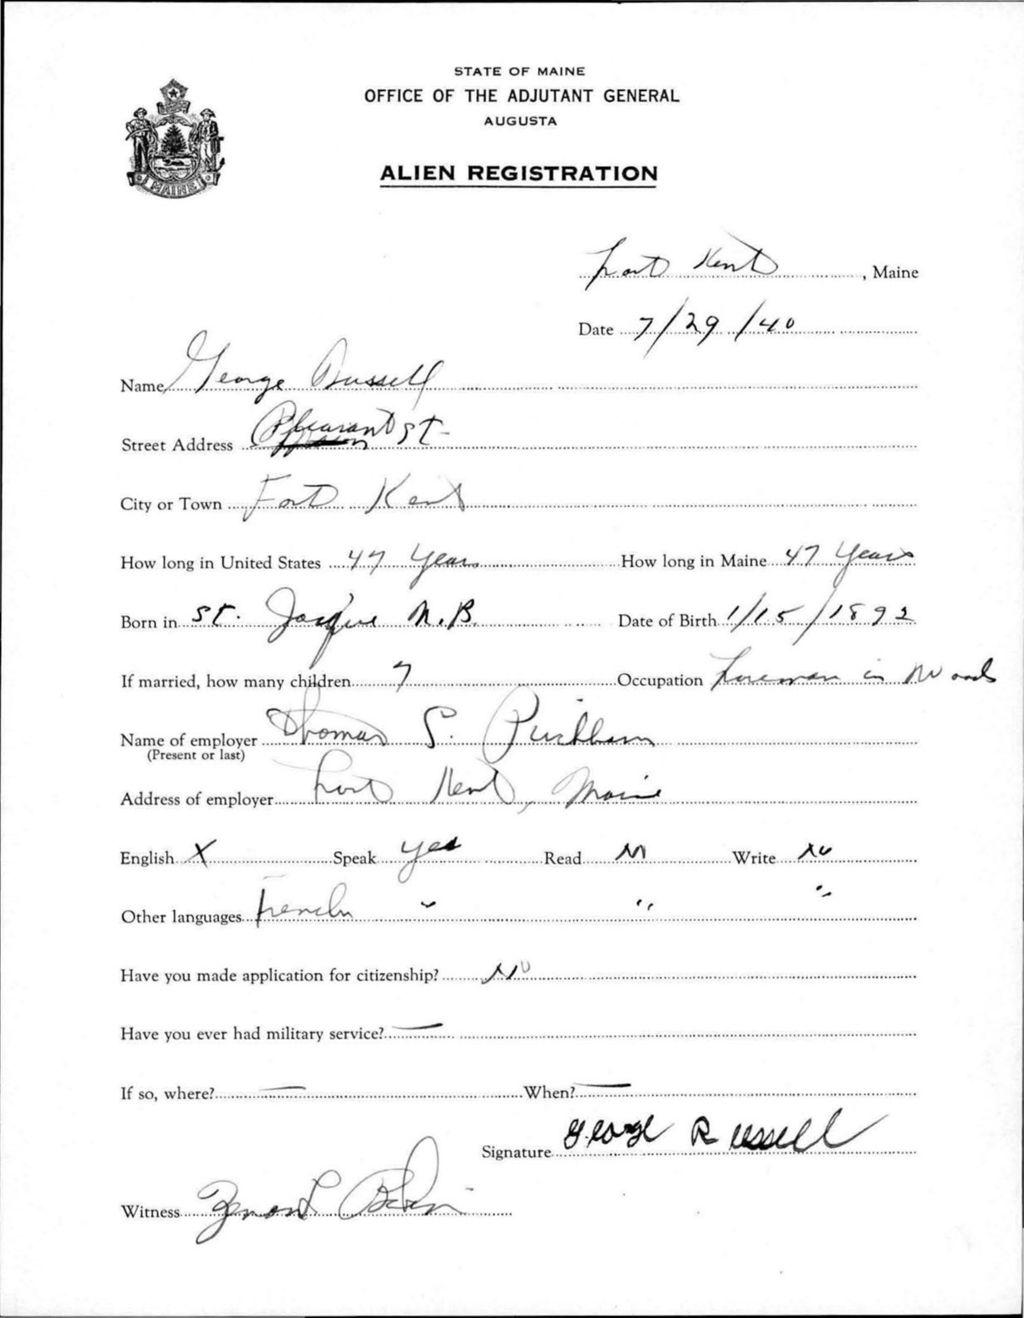 STATE OF MAINE
OFFICE OF THE ADJUTANT GENERAL
AUGUSTA
MAINE
ALIEN REGISTRATION
Fort Kent, Maine
Date 7/29/40
Name George Russell
Street Address Pleasant St
City or Town Fort Kent
How long in United States 47 Years How long in Maine 47 Years
Born in St. Jacque N.B. Date of Birth 1/15/1892
If married, how many children 7 Occupation Foreman in Woods
Name of employer Thomas S. Pinkham
(Present or last)
Address of employer Fort Kent, Maine
English X Speak yes Read No Write No
Other languages French " " "
Have you made application for citizenship? No
Have you ever had military service? —
If so, where? — When? —
Signature George Russell
Witness